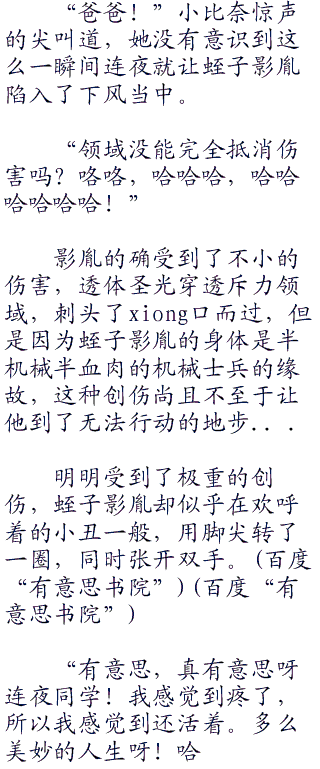 “爸爸！”小比奈惊声
的尖叫道，她没有意识到这
么一瞬间连夜就让蛭子影胤
陷入了下风当中。
“领域没能完全抵消伤
害吗？咯咯，哈哈哈，哈哈
哈哈哈哈！”
影胤的确受到了不小的
伤害，透体圣光穿透斥力领
域，刺头了xiong口而过，但
是因为蛭子影胤的身体是半
机械半血肉的机械士兵的缘
故，这种创伤尚且不至于让
他到了无法行动的地步...
明明受到了极重的创
伤，蛭子影胤却似乎在欢呼
着的小丑一般，用脚尖转了
一圈，同时张开双手。(百度
“有意思书院”)(百度“有
意思书院”)
“有意思，真有意思呀
连夜同学！我感觉到疼了，
所以我感觉到还活着。多么
美妙的人生呀！哈